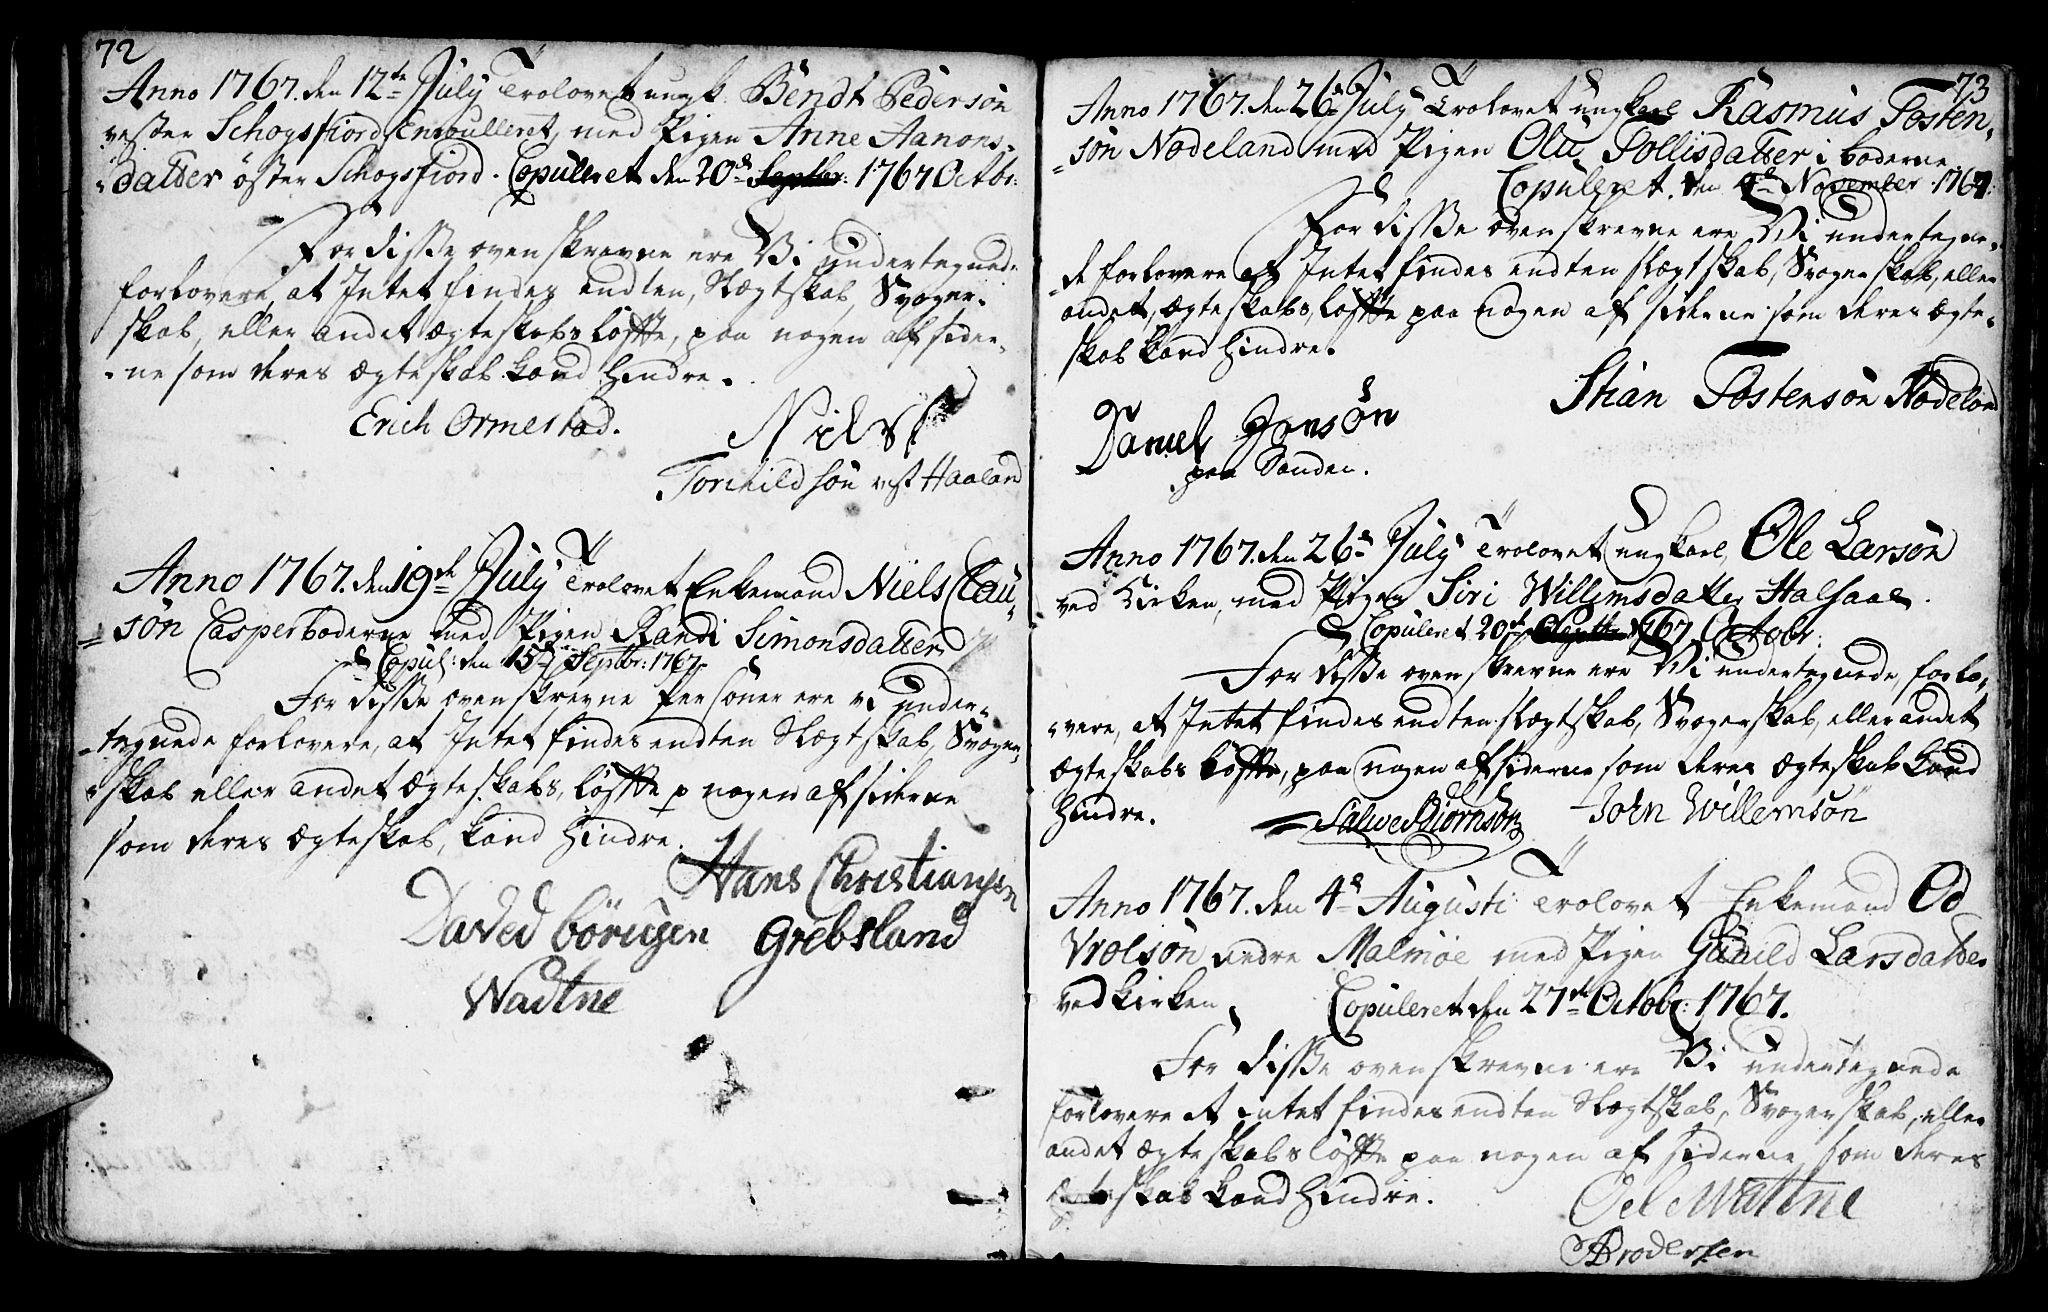 72
Anno 1767. den 12te July Trolovet ungk. Bendt Pedersøn
vester Schogsfiord Enroulleret, med Pigen Anne Aanons-
datter øster Schogsfiord. Copulleret den 20de Septbr: 1767 Octbr:
For disse ovenskrevne ere Vi undertegnede
forlovere, at Intet findes endten, Slægtskab, Svoger-
skab, eller andet ægteskabs løffte, paa nogen af sider-
-ne som deres ægteskab kand hindre.
Erich Ormestad.
Niels
Torkildsøn vest Haaland
Anno 1767. den 19de July Trolovet Enkemand Niels Clau-
søn Casperboderne med Pigen Randi Simonsdatter
Copul: den 15de Septbr: 1767.
For disse ovenskrevne Personer ere vi under-
-tegnede forlovere, at Intet findes endten Slægtskab, Svoger-
-skab eller andet ægteskabs, løffte p nogen af siderne
som deres ægteskab, kand hindre.
Hans Christiansen
David Børufen Grebsland
Wadtne
73
Anno 1767. den 26de July Trolovet ungkarl Rasmus Tosten-
-søn Nodeland med Pigen Olu Pollisdatter i boderne
Copuleret. den 4de November 1767.
For disse ovenskrevne ere Vi undertegne-
-de forlovere at Intet findes endten slægtskab, Svogerskab, eller
andet, ægteskabs, løffte paa nogen af siderne som deres ægte-
skab kand hindre.
Stian Tostensøn Nodeland
Daniel Jonsøn
paa Sanden.
Anno 1767. den 26de July Trolovet ungkarl, Ole Larsøn
ved Kirken, med Pigen Siri Willemsdatter Halsaae.
Copuleret 20de Septbr 1767 Octobr:
For disse ovenskrevne ere Vi undertegnede, forlo-
-vere, at Intet findes endten slægtskab, Svogerskab, eller andet
ægteskabs løffte, paa nogen af siderne som deres ægteskab kand
hindre.
Salve Biørnsøn John Willemsøn
Anno 1767. den 4de Augusti Trolovet Enkemand Od
Vrolsøn indre Malmøe med Pigen Gunild Larsdatter
ved kirken Copuleret den 27de Octobr: 1767.
For disse ovenskrevne ere Vi undertegnede
forlovere at intet findes endten Slægtskab, Svogerskab, eller
andet ægteskabs løffte paa nogen af siderne som deres
ægteskab kand hindre.
Oel Wattne
Brodersen